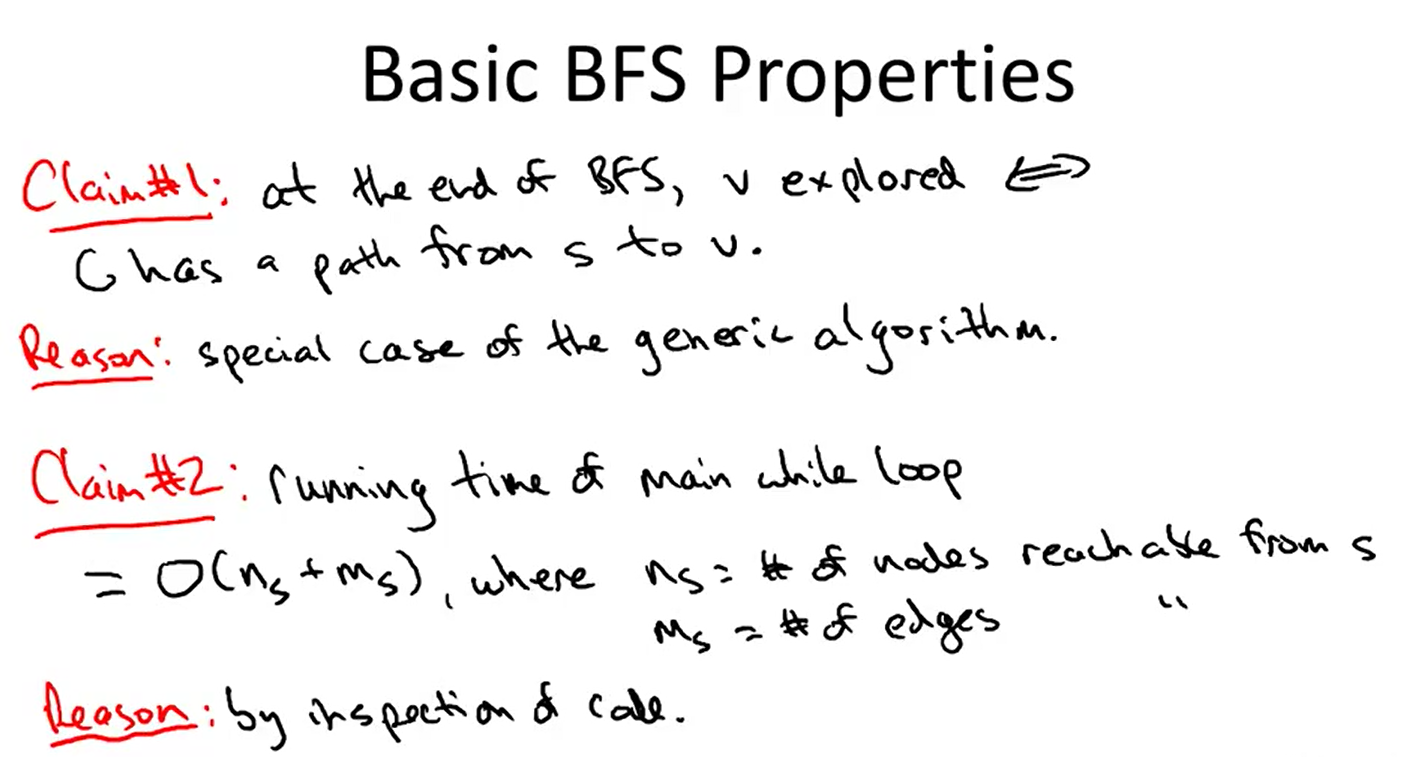 Basic BFS Properties
Claim #1: at the end of BFS, v explored ⟺
G has a path from s to v.
Reason: special case of the generic algorithm.
Claim #2: running time of main while loop
= O(nₛ + mₛ), where nₛ = # of nodes reachable from s
mₛ = # of edges "
Reason: by inspection of code.